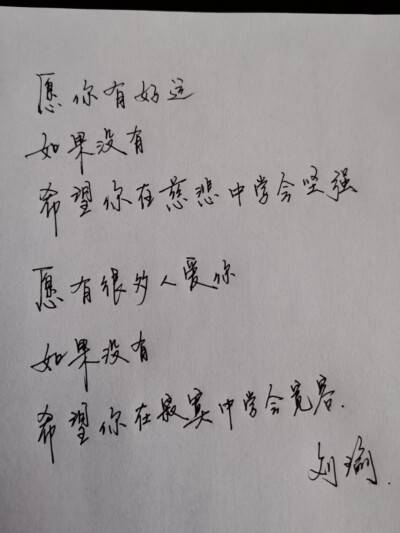 愿你有好运
如果没有
希望你在慈悲中学会坚强
愿有很多人爱你
如果没有
希望你在寂寞中学会宽容.
刘瑜.